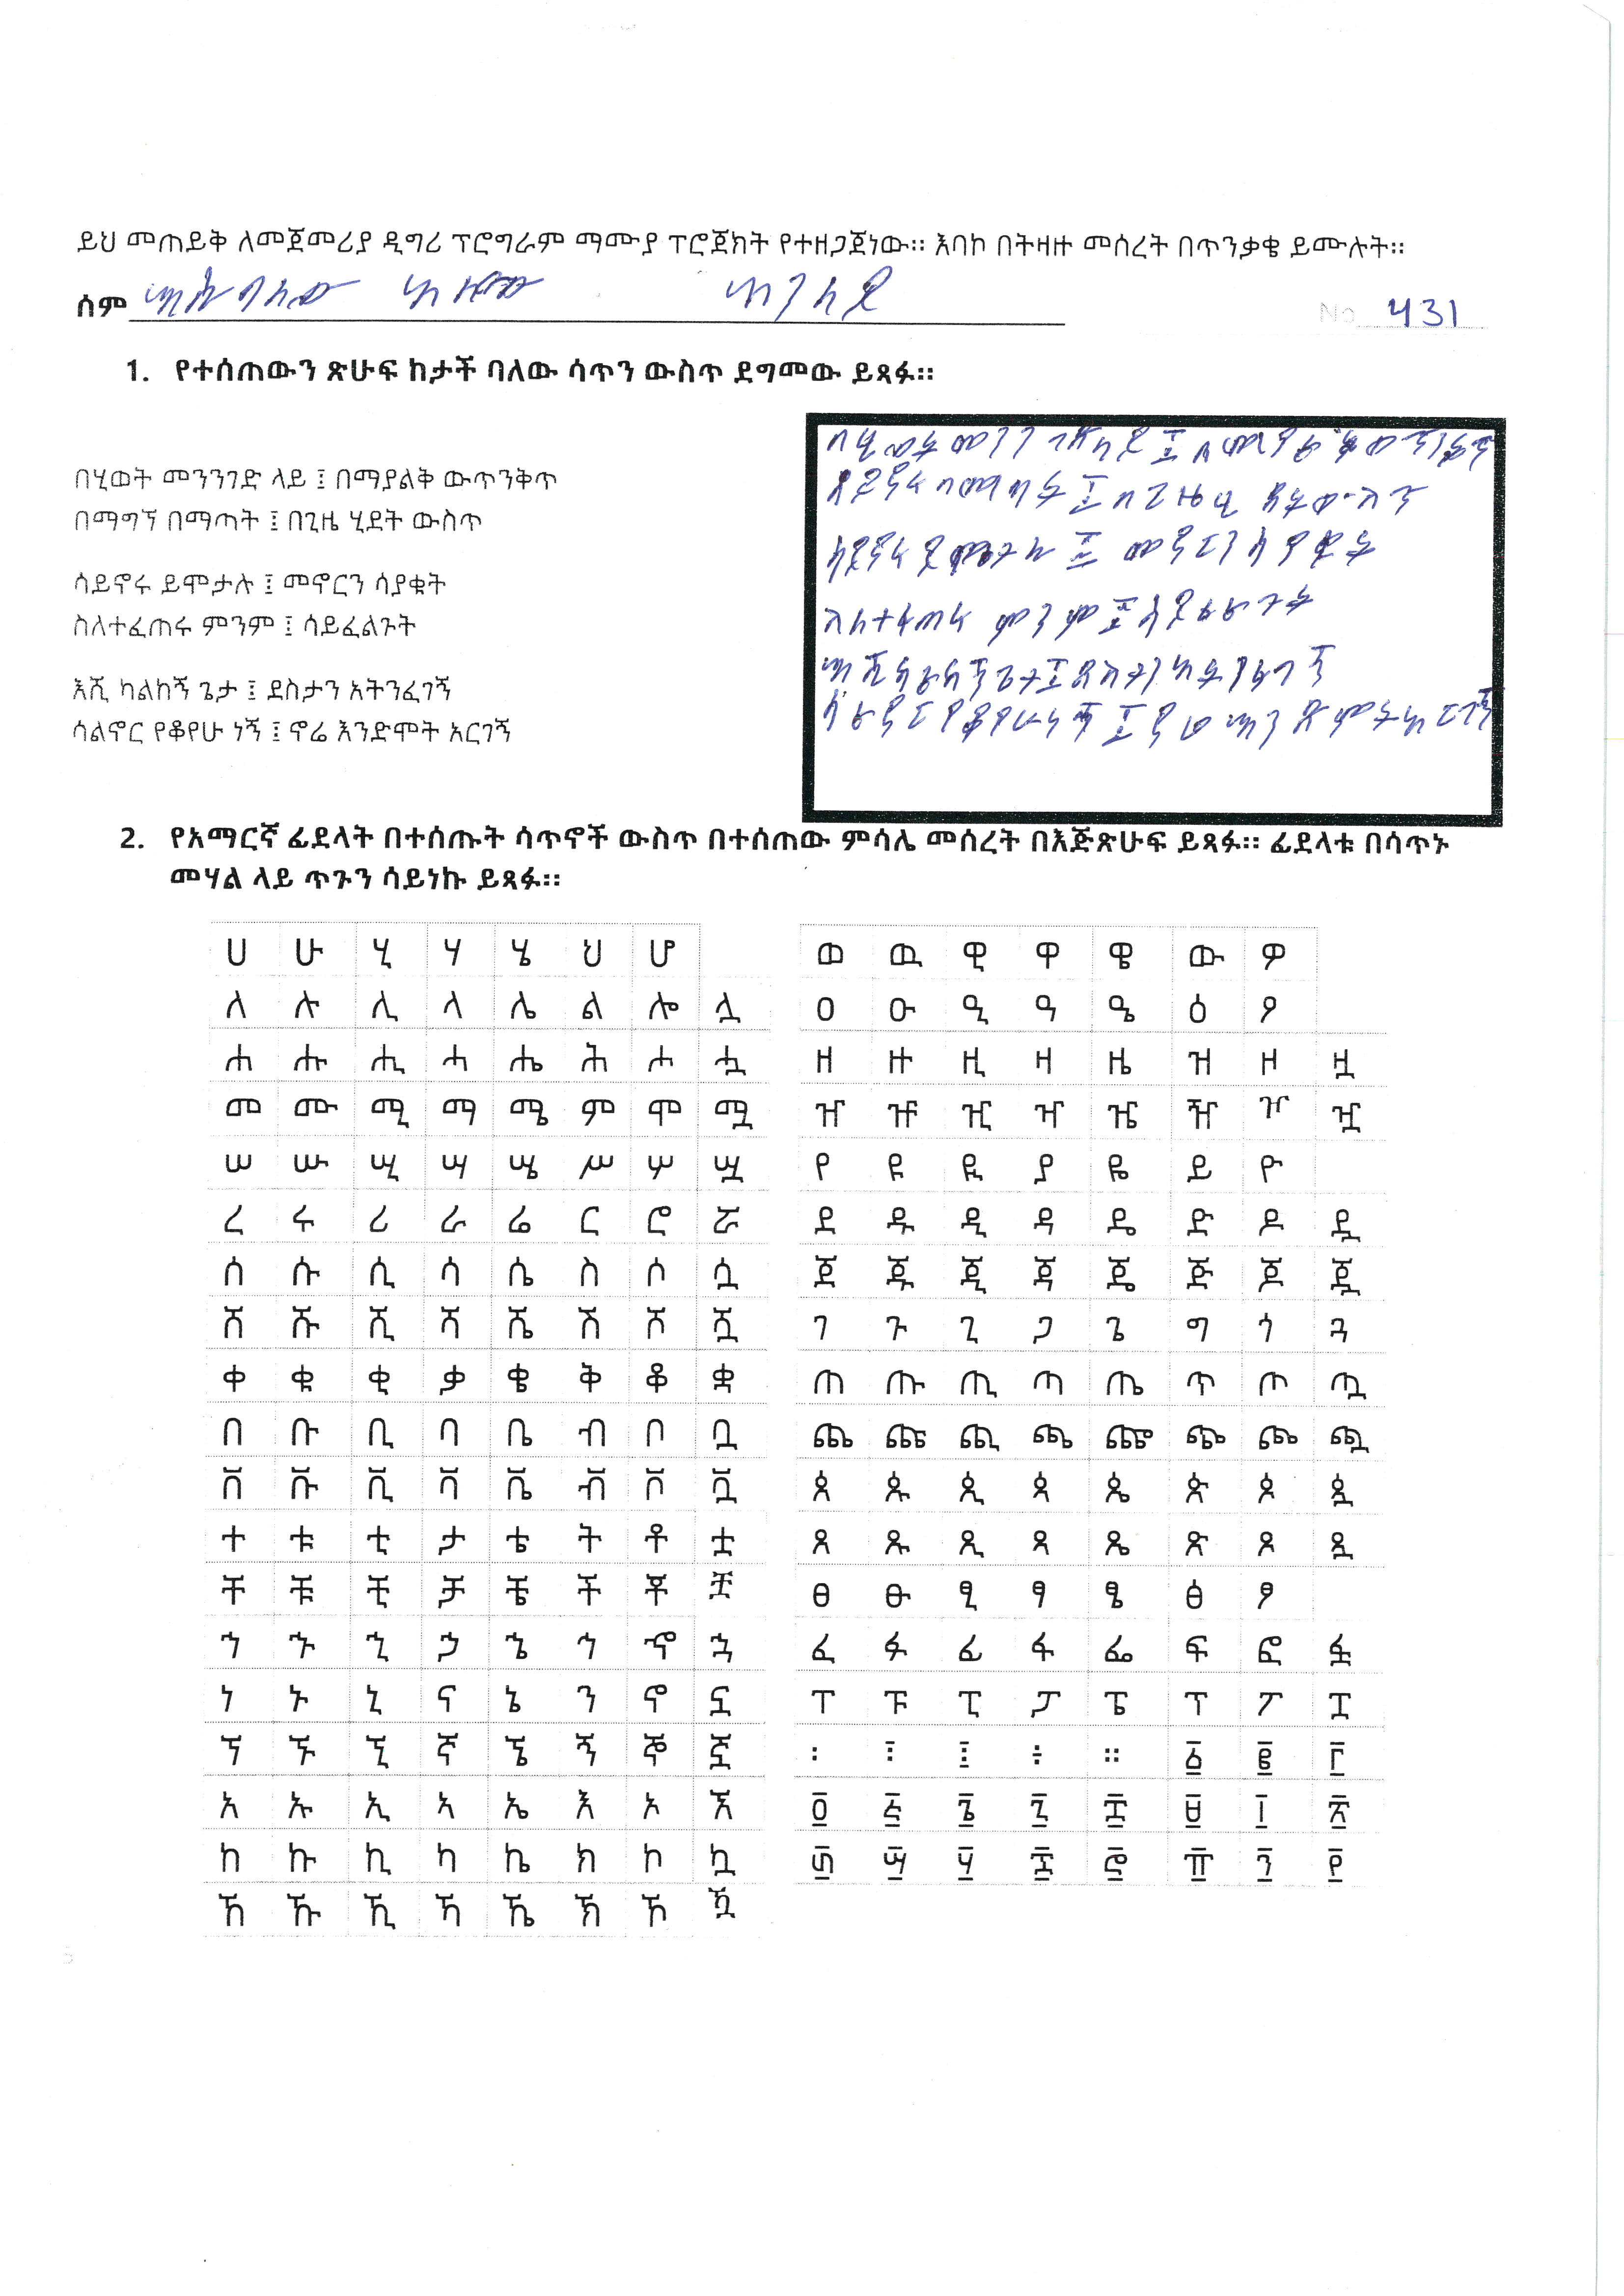 ይህ መጠይቅ ለመጀመሪያ ዲግሪ ፕሮግራም ማሙያ ፕሮጀክት የተዘጋጀነው። እባኮ በትዛዙ መሰረት በጥንቃቄ ይሙሉት።
ስም
No 431
1. የተሰጠውን ጽሁፍ ከታች ባለው ሳጥን ውስጥ ደግመው ይጻፉ።
በሂወት መንንገድ ላይ ፤ በማያልቅ ውጥንቅጥ
በማግኘ በማጣት ፤ በጊዜ ሂደት ውስጥ
ሳይኖሩ ይሞታሉ ፤ መኖርን ሳያቁት
ስለተፈጠሩ ምንም ፤ ሳይፈልጉት
እሺ ካልከኝ ጌታ ፤ ደስታን አትንፈገኝ
ሳልኖር የቆየሁ ነኝ ፤ ኖሬ እንድሞት አርገኝ
በሂወት መንን ገድ ላይ ፤
ሳይኖሩ ይሞታሉ ፤ መኖርን ሳያቁት
ስለተፈጠሩ ምንም ፤ ሳይፈልጉት
2. የአማርኛ ፊደላት በተሰጡት ሳጥኖች ውስጥ በተሰጠው ምሳሌ መሰረት በእጅጽሁፍ ይጻፉ። ፊደላቱ በሳጥኑ
መሃል ላይ ጥጉን ሳይነኩ ይጻፉ።
ሀ ሁ ሂ ሃ ሄ ህ ሆ
ለ ሉ ሊ ላ ሌ ል ሎ ሏ
ሐ ሑ ሒ ሓ ሔ ሕ ሖ ሗ
መ ሙ ሚ ማ ሜ ም ሞ ሟ
ሠ ሡ ሢ ሣ ሤ ሥ ሦ ሧ
ረ ሩ ሪ ራ ሬ ር ሮ ሯ
ሰ ሱ ሲ ሳ ሴ ስ ሶ ሷ
ሸ ሹ ሺ ሻ ሼ ሽ ሾ ሿ
ቀ ቁ ቂ ቃ ቄ ቅ ቆ ቋ
በ ቡ ቢ ባ ቤ ብ ቦ ቧ
ቨ ቩ ቪ ቫ ቬ ቭ ቮ ቯ
ተ ቱ ቲ ታ ቴ ት ቶ ቷ
ቸ ቹ ቺ ቻ ቼ ች ቾ ቿ
ኀ ኁ ኂ ኃ ኄ ኅ ኆ ኋ
ነ ኑ ኒ ና ኔ ን ኖ ኗ
ኘ ኙ ኚ ኛ ኜ ኝ ኞ ኟ
አ ኡ ኢ ኣ ኤ እ ኦ ኧ
ከ ኩ ኪ ካ ኬ ክ ኮ ኳ
ኸ ኹ ኺ ኻ ኼ ኽ ኾ ዃ
ወ ዉ ዊ ዋ ዌ ው ዎ
ዐ ዑ ዒ ዓ ዔ ዕ ዖ
ዘ ዙ ዚ ዛ ዜ ዝ ዞ ዟ
ዠ ዡ ዢ ዣ ዤ ዥ ዦ ዧ
የ ዩ ዪ ያ ዬ ይ ዮ
ደ ዱ ዲ ዳ ዴ ድ ዶ ዷ
ጀ ጁ ጂ ጃ ጄ ጅ ጆ ጇ
ገ ጉ ጊ ጋ ጌ ግ ጎ ጓ
ጠ ጡ ጢ ጣ ጤ ጥ ጦ ጧ
ጨ ጩ ጪ ጫ ጬ ጭ ጮ ጯ
ጰ ጱ ጲ ጳ ጴ ጵ ጶ ጷ
ጸ ጹ ጺ ጻ ጼ ጽ ጾ ጿ
ፀ ፁ ፂ ፃ ፄ ፅ ፆ
ፈ ፉ ፊ ፋ ፌ ፍ ፎ ፏ
ፐ ፑ ፒ ፓ ፔ ፕ ፖ ፗ
፡ ፣ ፤ ፥ ። ፩ ፪ ፫
፬ ፭ ፮ ፯ ፰ ፱ ፲ ፳
፴ ፵ ፶ ፷ ፸ ፹ ፺ ፻